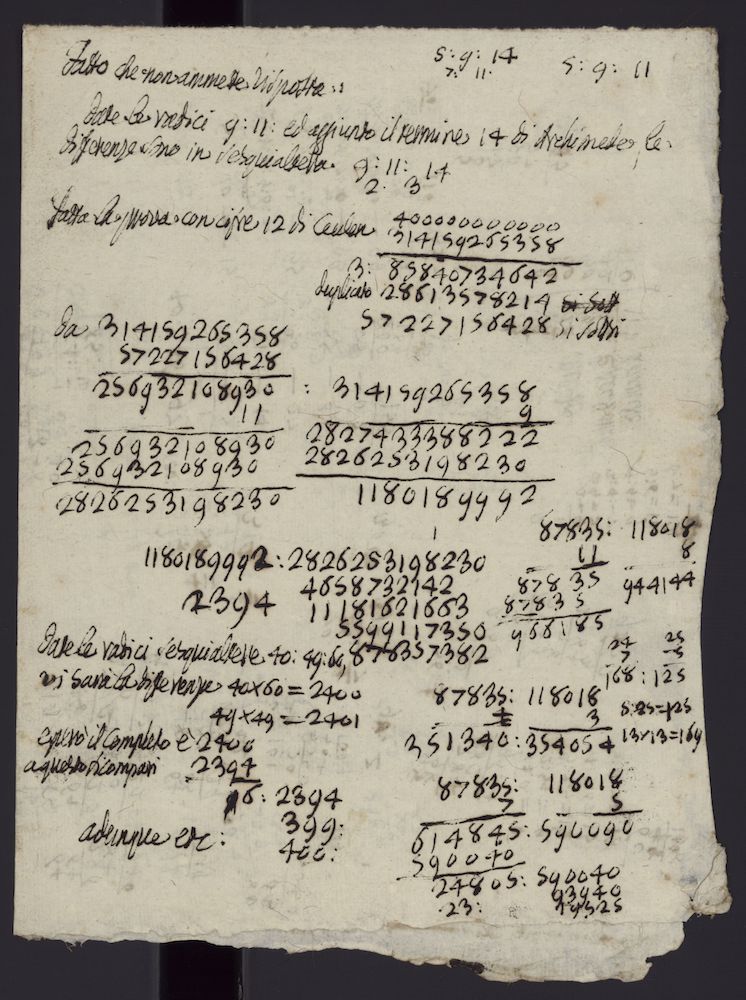 5: 9: 14
7: 11:
5: 9: 11
Fatto che non ammette risposta:
Date le radici 9: 11: ed aggiunto il termine 14 di Archimede, le
differenze sono in sesquialtera. 9: 11: 14
2: 3
fatta la prova con cifre 12 di Ceulen 400000000000
314159265358
3: 85840734642
duplicato 28613578214
57227156428
Da 314159265358
57227156428
256932108930 : 314159265358
11 9
256932108930 2827433388222
256932108930 2826253198230
2826253198230 1180189992
87835: 118018
11 8
87835 944144
87835
966185
1180189992: 2826253198230
2394 4658732142
11181621663
5599117350
878357382
24 25
7 5
168: 125
Date le radici sesquialtere 40: 49: 60,
vi sarà la differenza 40×60=2400
49×49=2401
e però il completo è 2400
a questo 2394
6: 2394
399:
400:
adunque etc:
87835: 118018
4 3
351340: 354054
5:25=125
13×13=169
87835: 118018
7 5
614845: 590090
590040
24805: 590040
23: 93940
19525